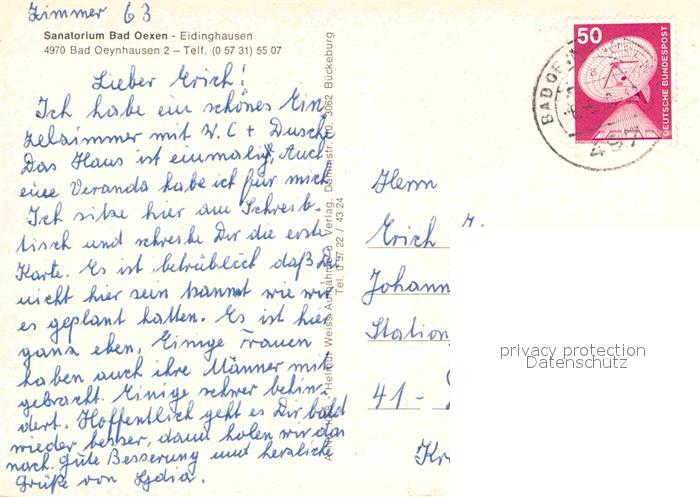 Zimmer 63
Sanatorium Bad Oexen - Eidinghausen
4970 Bad Oeynhausen 2 – Telf. (0 57 31) 55 07
Lieber Erich!
Ich habe ein schönes Ein-
zelzimmer mit W.C + Dusche
Das Haus ist einmalig, Auch
eine Veranda habe ich für mich
Ich sitze hier am Schreib-
tisch und schreibe Dir die erste
Karte. Es ist betrüblich daß Du
nicht hier sein kannst wie wir
es geplant hatten. Es ist hier
ganz eben. Einige Frauen
haben auch ihre Männer mit
gebracht. Einige schwer behin-
dert. Hoffentlich geht es Dir bald
wieder besser, dann holen wir das
nach. Gute Besserung und herzliche
Grüße von Lydia.
Helmut Weiss Aufnahme u. Verlag, Dammstr. 3062 Bückeburg
Tel. 0 57 22 / 43 24
50
DEUTSCHE BUNDESPOST
BAD OE
497
Herrn
Erich
Johann
Station
41 -
Kr
privacy protection
Datenschutz